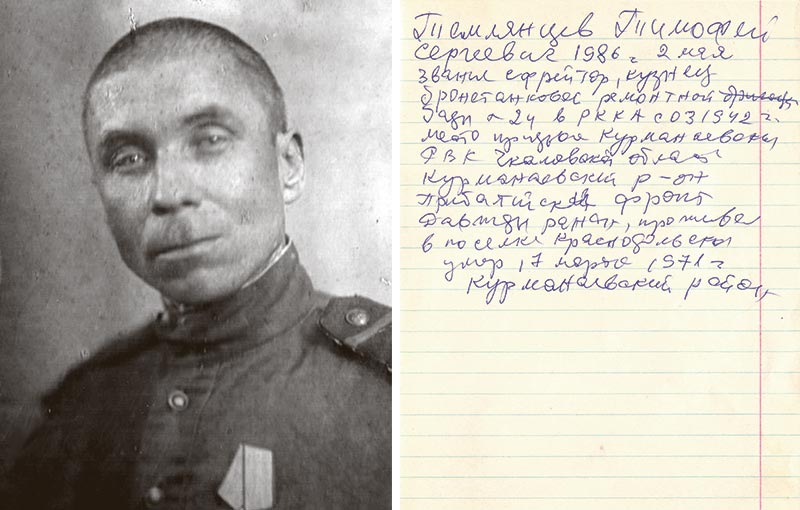 Темлянцев Тимофей
Сергеевич 1986 г. 2 мая
звание ефрейтор, кузнец
бронетанковое ремонтной
базы № 24 в РККА с 03 1942 г.
место призыва Курманаевский
РВК Чкаловской област
Курманаевский р-он
фронт
дважды ранен, проживал
в поселке Краснодольский
умер 17 марта 1971 г
Курманаевский район